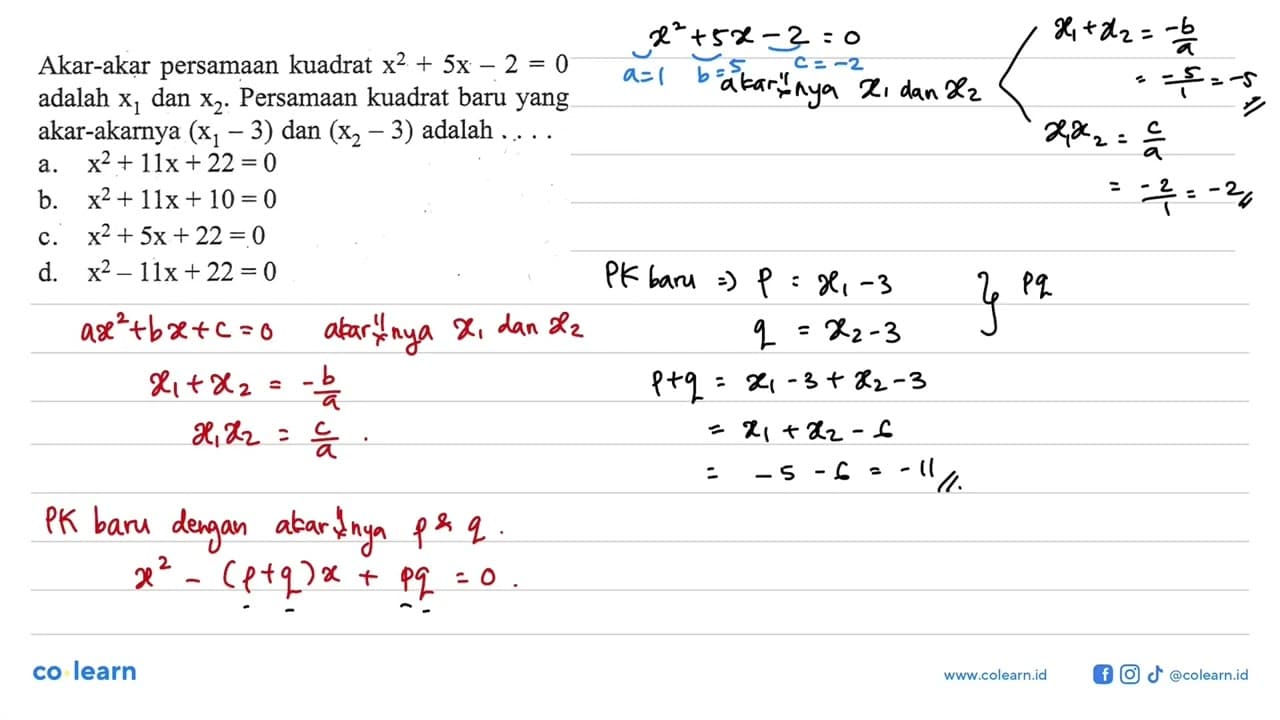 Akar-akar persamaan kuadrat x² + 5x – 2 = 0
adalah x₁ dan x₂. Persamaan kuadrat baru yang
akar-akarnya (x₁ – 3) dan (x₂ – 3) adalah . . . .
a. x² + 11x + 22 = 0
b. x² + 11x + 10 = 0
c. x² + 5x + 22 = 0
d. x² – 11x + 22 = 0
x² + 5x – 2 = 0
a=1 b=5 c=-2
akar"nya x₁ dan x₂
x₁ + x₂ = -b/a
= -5/1 = -5
x₁x₂ = c/a
= -2/1 = -2
ax² + bx + c = 0 akar"nya x₁ dan x₂
x₁ + x₂ = -b/a
x₁x₂ = c/a .
PK baru dengan akar"nya p & q .
x² – (p+q)x + pq = 0 .
PK baru => p = x₁ - 3 } pq
q = x₂ - 3
p+q = x₁ - 3 + x₂ - 3
= x₁ + x₂ - 6
= -5 - 6 = -11
co learn
www.colearn.id
@colearn.id